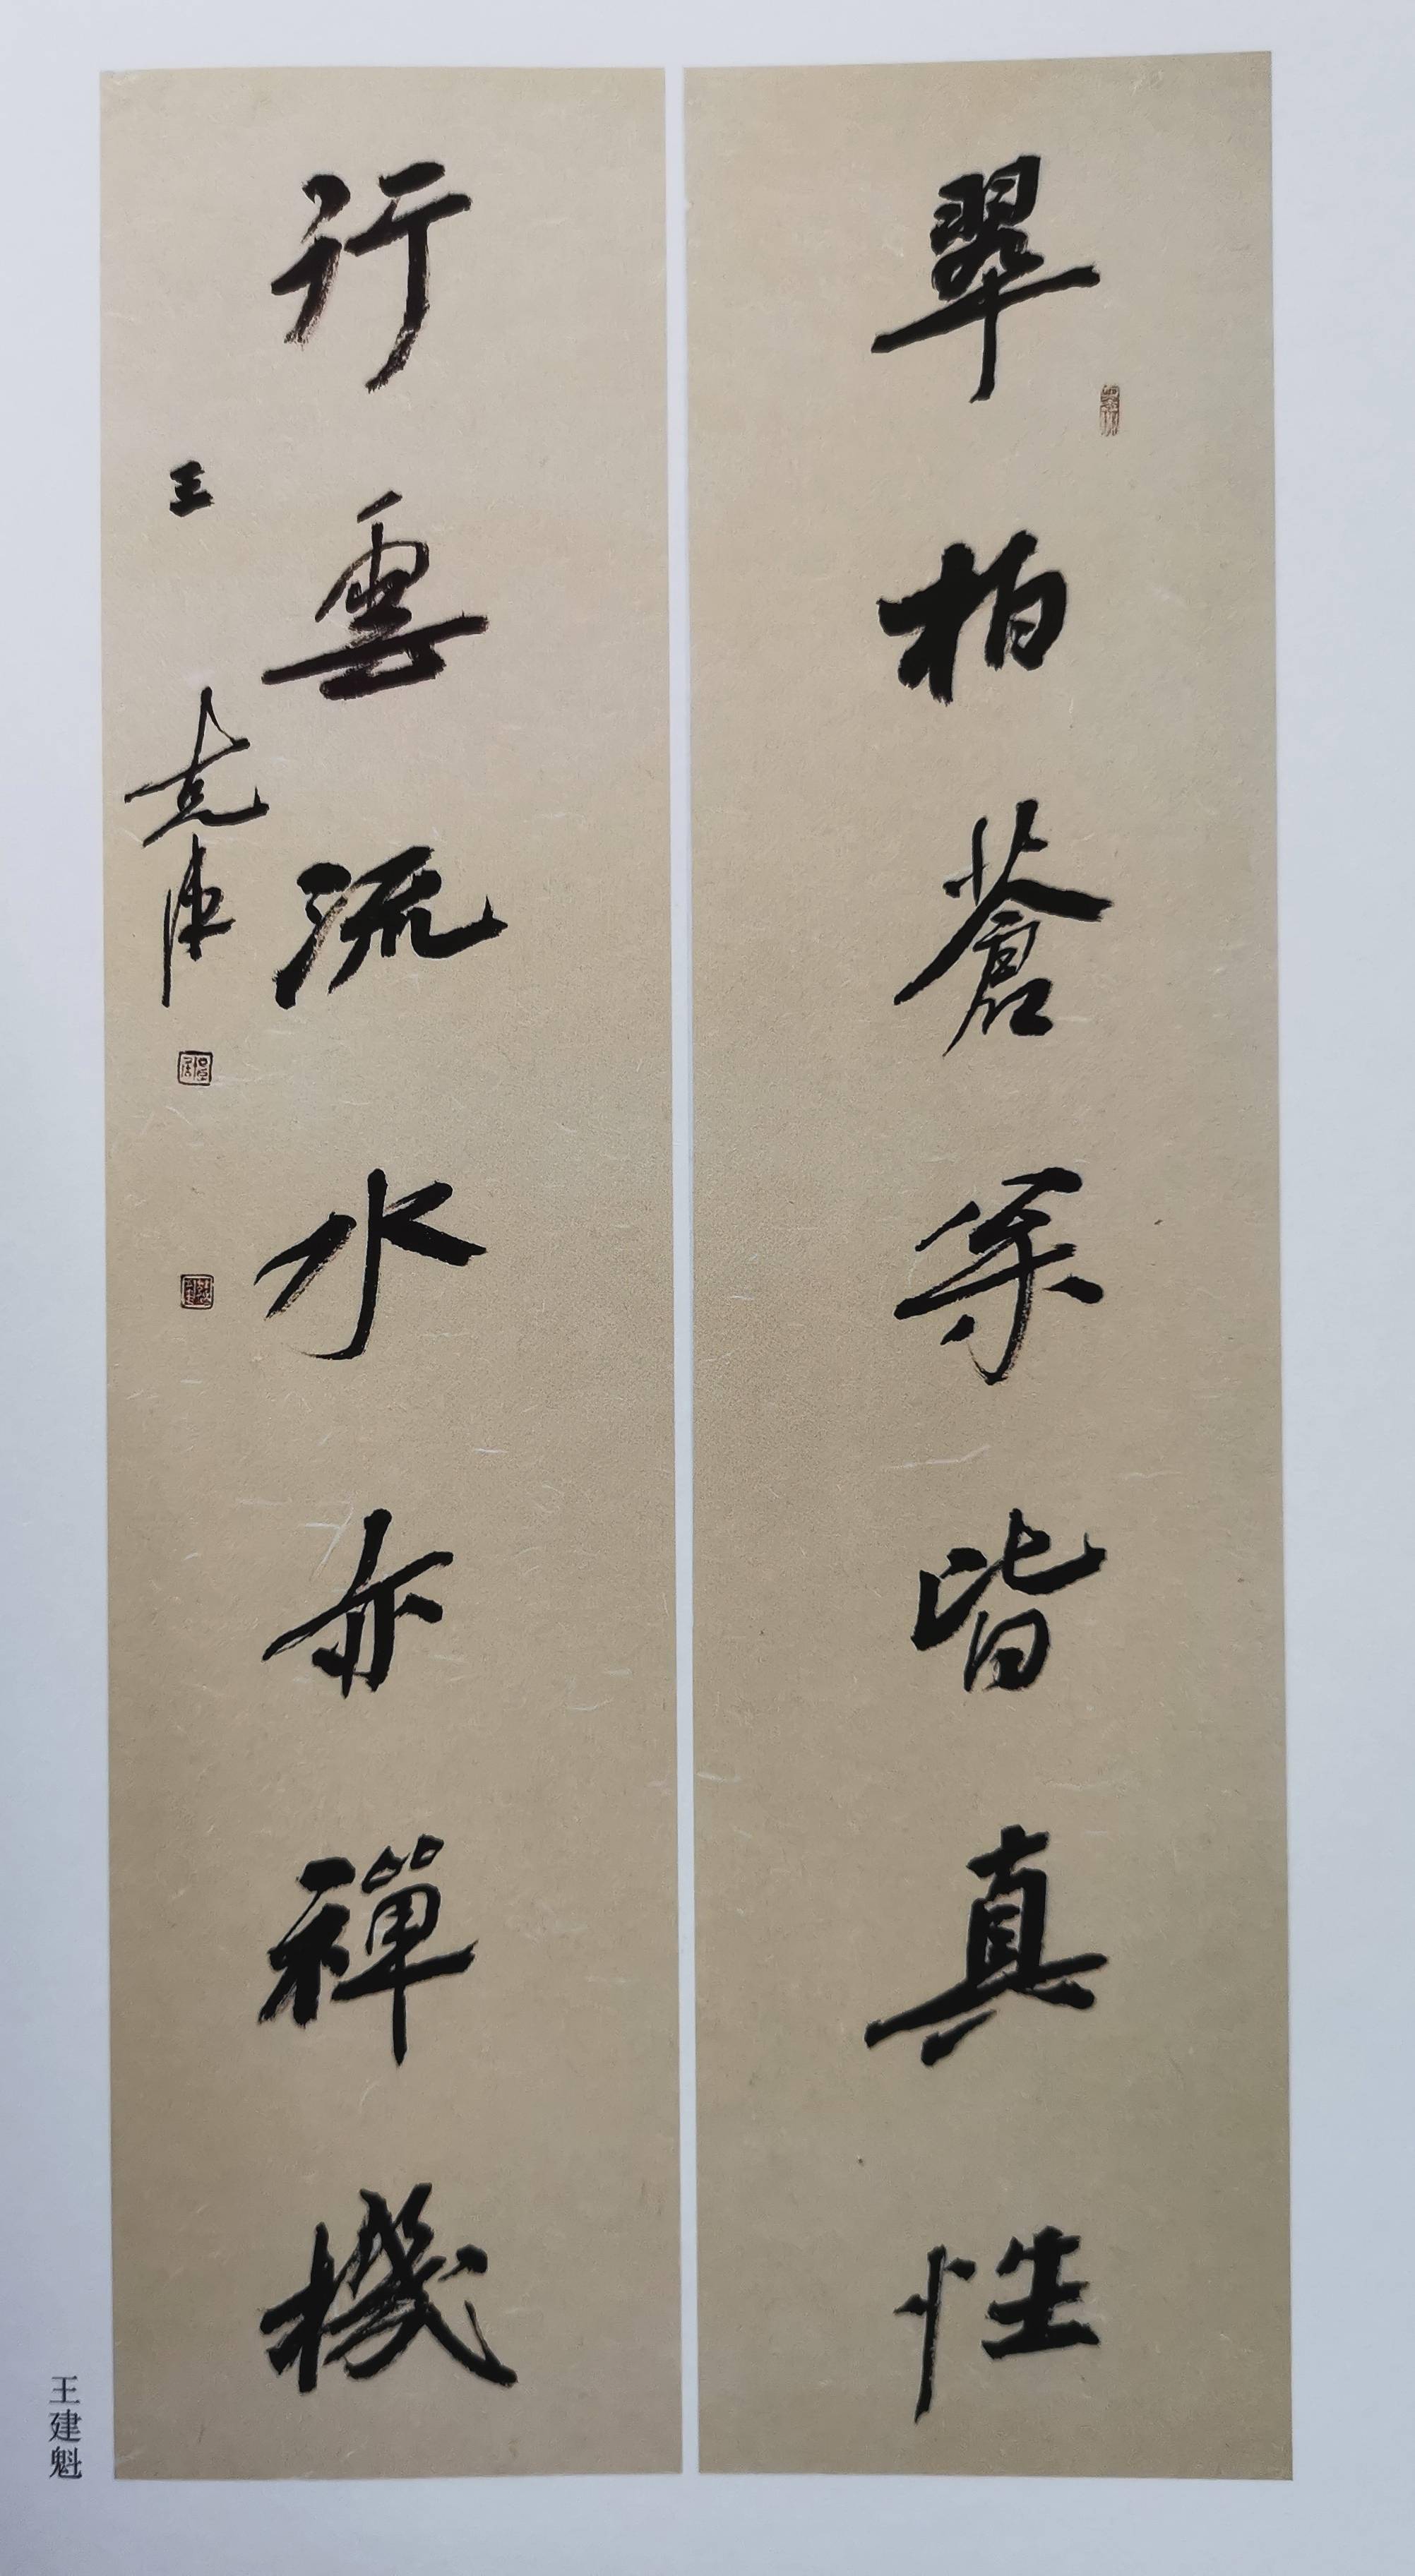 翠柏蒼皆真性
行雲流水亦禪機
王
王建魁